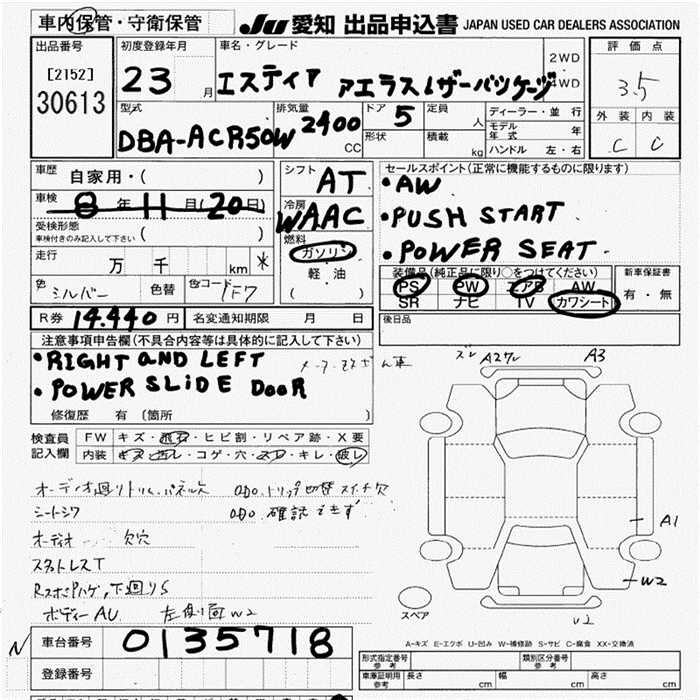 車内保管・守衛保管
JU 愛知 出品申込書 JAPAN USED CAR DEALERS ASSOCIATION
出品番号
[2152]
30613
初度登録年月
23 月
車名・グレード
エスティア アエラスレザーパッケージ
2WD
・
4WD
評価点
3.5
外装 内装
C C
型式
DBA-ACR50W
排気量
2400
CC
ドア 5
形状
定員 人
積載 kg
ディーラー・並行
モデル年式 年
ハンドル 左・右
車歴 自家用・( )
車検 8年 11月(20日)
受検形態
車検付きのみ記入して下さい ( )
走行 万 千 km *
色 シルバー 色替 色コード 1F7
シフト AT
冷房 WAAC
燃料
ガソリン
軽・油
( )
セールスポイント(正常に機能するものに限ります)
・AW
・PUSH START
・POWER SEAT
装備品(純正品に限り○をつけてください)
PS PW エアB AW
SR ナビ TV カワシート
新車保証書
有・無
R券 14.440 円 名変通知期限 月 日
後日品
注意事項申告欄(不具合内容等は具体的に記入して下さい)
・RIGHT AND LEFT
・POWER SLIDE DOOR
修復歴 有 (箇所 )
検査員記入欄
FW キズ・飛石・ヒビ割・リペア跡・X要
内装 キズ・汚レ・コゲ・穴・スレ・キレ・破レ
オーディオ廻りトリム、パネル欠
シートシワ 確認できず
オーディオ 欠穴
スタットレスT
下廻りS
ボディーAU 左側面W2
A3
A1
W2
スペア
A-キズ E-エクボ U-凹み W-補修跡 S-サビ C-腐食 XX-交換済
N
車台番号 0135718
登録番号
形式指定番号 参考
類別区分番号 参考
車庫証明用 参考 長さ cm 幅 cm 高さ cm